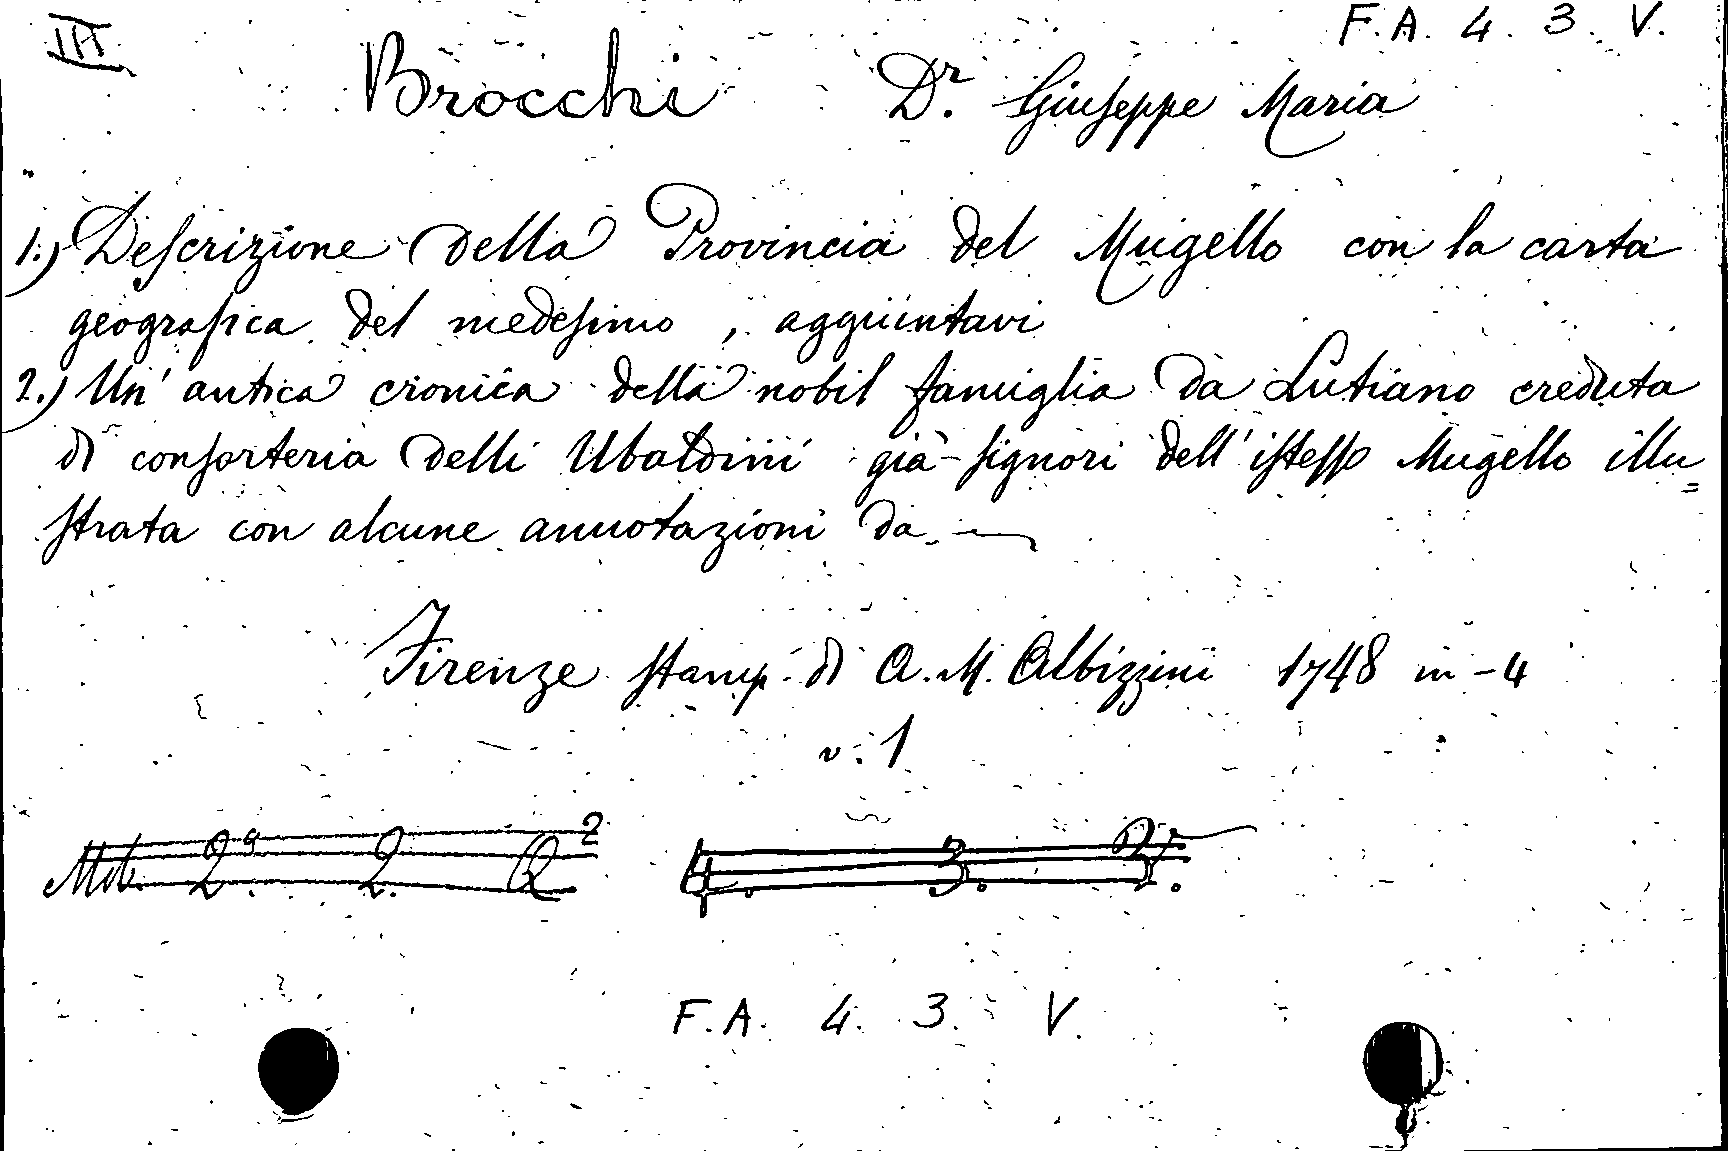 III
F. A. 4. 3. V.
Brocchi Dr. Giuseppe Maria
1.) Descrizione della Provincia del Mugello con la carta
geografica del medesimo, aggiuntavi
2.) Un' antica cronica della nobil famiglia da Lutiano creduta
di consorteria delli Ubaldini già signori dell' istesso Mugello illu=
strata con alcune annotazioni da —
Firenze stamp. di A. M. Albizzini 1748 in-4
v. 1
2ª. 2. Q²
4. 3.
F. A. 4. 3. V.